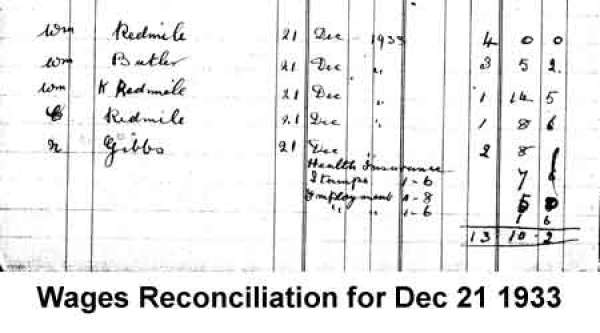 Wm Redmile 21 Dec 1933 4 0 0
Wm Butler 21 Dec " 3 5 2
Wm K Redmile 21 Dec " 1 14 5
Redmile 21 Dec " 1 8 6
Gibbs 21 Dec " 2 8
Health Insurance
Stamps 1-6 7 6
Employment 1-8
" " 1-6 1 6
13 10-2
Wages Reconciliation for Dec 21 1933